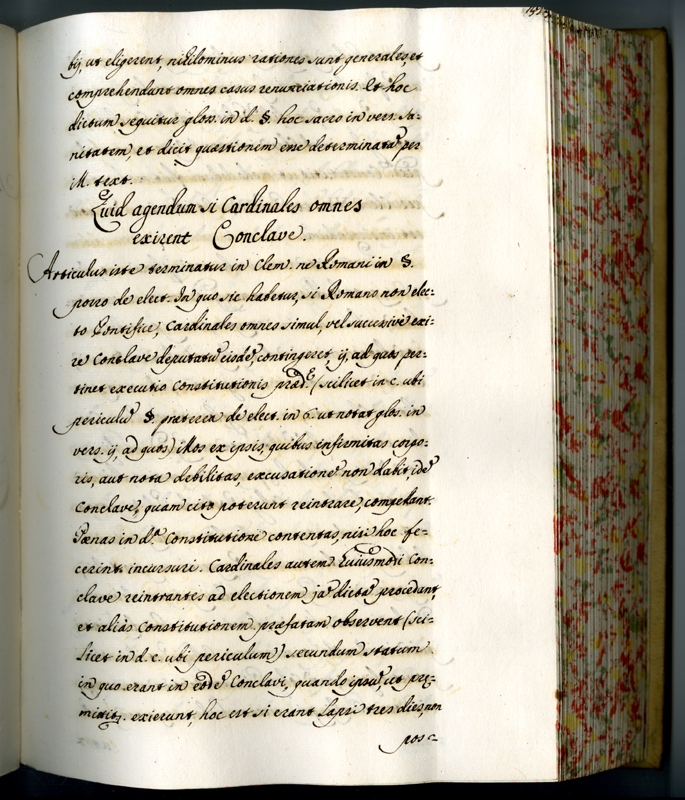 bij, ut eligerent, nihilominus rationes sunt generales, et
comprehendunt omnes casus renunciationis. Et hoc
dictum sequitur glos. in d. §. hoc sacro in vers. sa-
nitatem, et dicit quæstionem esse determinatã per
ill. text.
Quid agendum si Cardinales omnes
exirent Conclave.
Articulus iste terminatur in Clem. ne Romani in §.
porro de elect. In quo sic habetur, si Romano non elec-
to Pontifice, Cardinales omnes simul, vel successivè exi-
re Conclave deputatũ eisdẽ, contingeret, ij, ad quos per-
tinet executio Constitutionis præd.ẽ (scilicet in c. ubi
periculũ §. præterea de elect. in 6. ut notat glos. in
vers. ij, ad quos) illos ex ipsis, quibus infirmitas corpo-
ris, aut nota debilitas, excusationẽ non dabit, idẽ
Conclave, quam cito poterunt reintrare, compellant.
Pœnas in d.ª Constitutione contentas, nisi hoc fe-
cerint incursuri. Cardinales autem huiusmodi Con-
clave reintrantes ad electionem jã dictã procedant,
et aliàs Constitutionem præfatam observent (sci-
licet in d. c. ubi periculum) secundum statum
in quo erant in eodẽ Conclavi, quando ipsũ, ut præ-
mittitʳ. exierunt, hoc est si erant lapsi tres dies, non
pos-